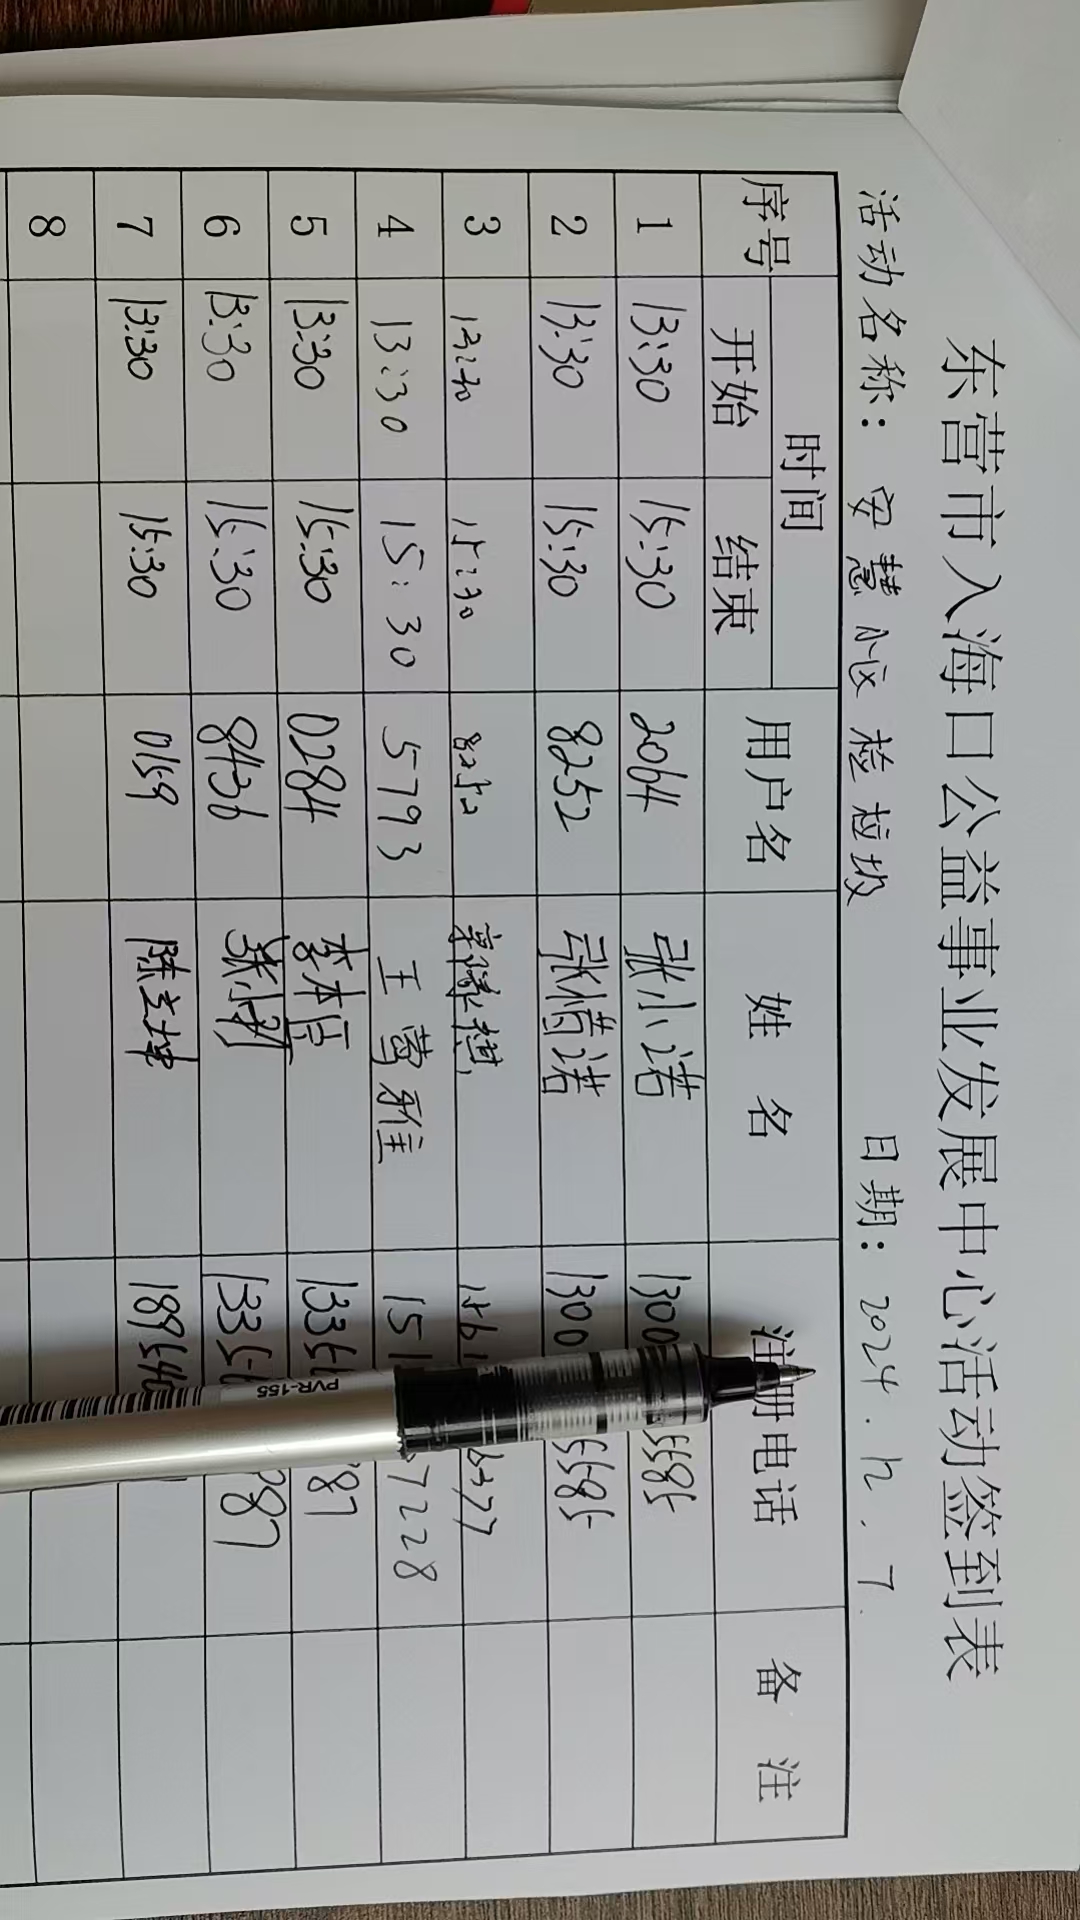 东营市入海口公益事业发展中心活动签到表
活动名称：安慧小区 捡垃圾 日期：2024.12.7
序号 时间 用户名 姓名 注册电话 备注
开始 结束
1 13:30 15:30 2064 张小诺 1300 5585
2 13:30 15:30 8252 张惜诺 1300 5585
3 13:30 15:30 8252 156 6377
4 13:30 15:30 5793 王 雅 151 7228
5 13:30 15:30 0284 李本 1336 87
6 13:30 15:30 8436 张 1335 287
7 13:30 15:30 0159 陈立坤 189546
8
PVR-155